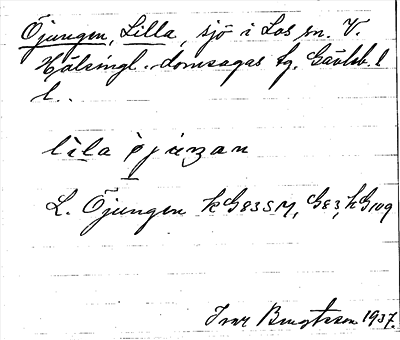 Öjungen, Lilla, sjö i Los sn. V.
Hälsingl. domsagas tg. Gävleb. l
l..
lìla ö̀juŋan
L. Öjungen kG83SM, G83, hG109
Ivar Bengtsson 1937.